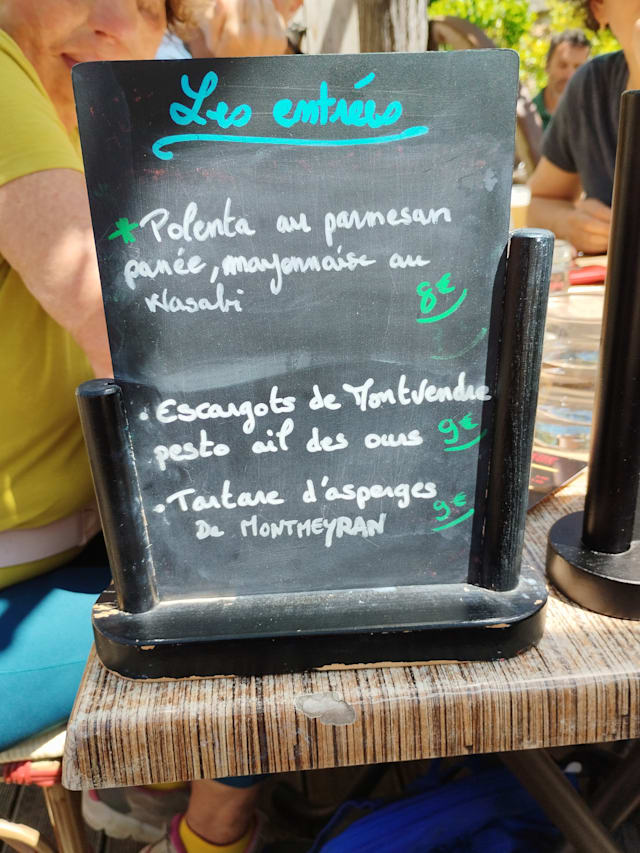 Les entrées
* Polenta au parmesan
panée, mayonnaise au
Wasabi
8€
• Escargots de Montvendre
pesto ail des ours 9€
• Tartare d'asperges
De MONTMEYRAN 9€